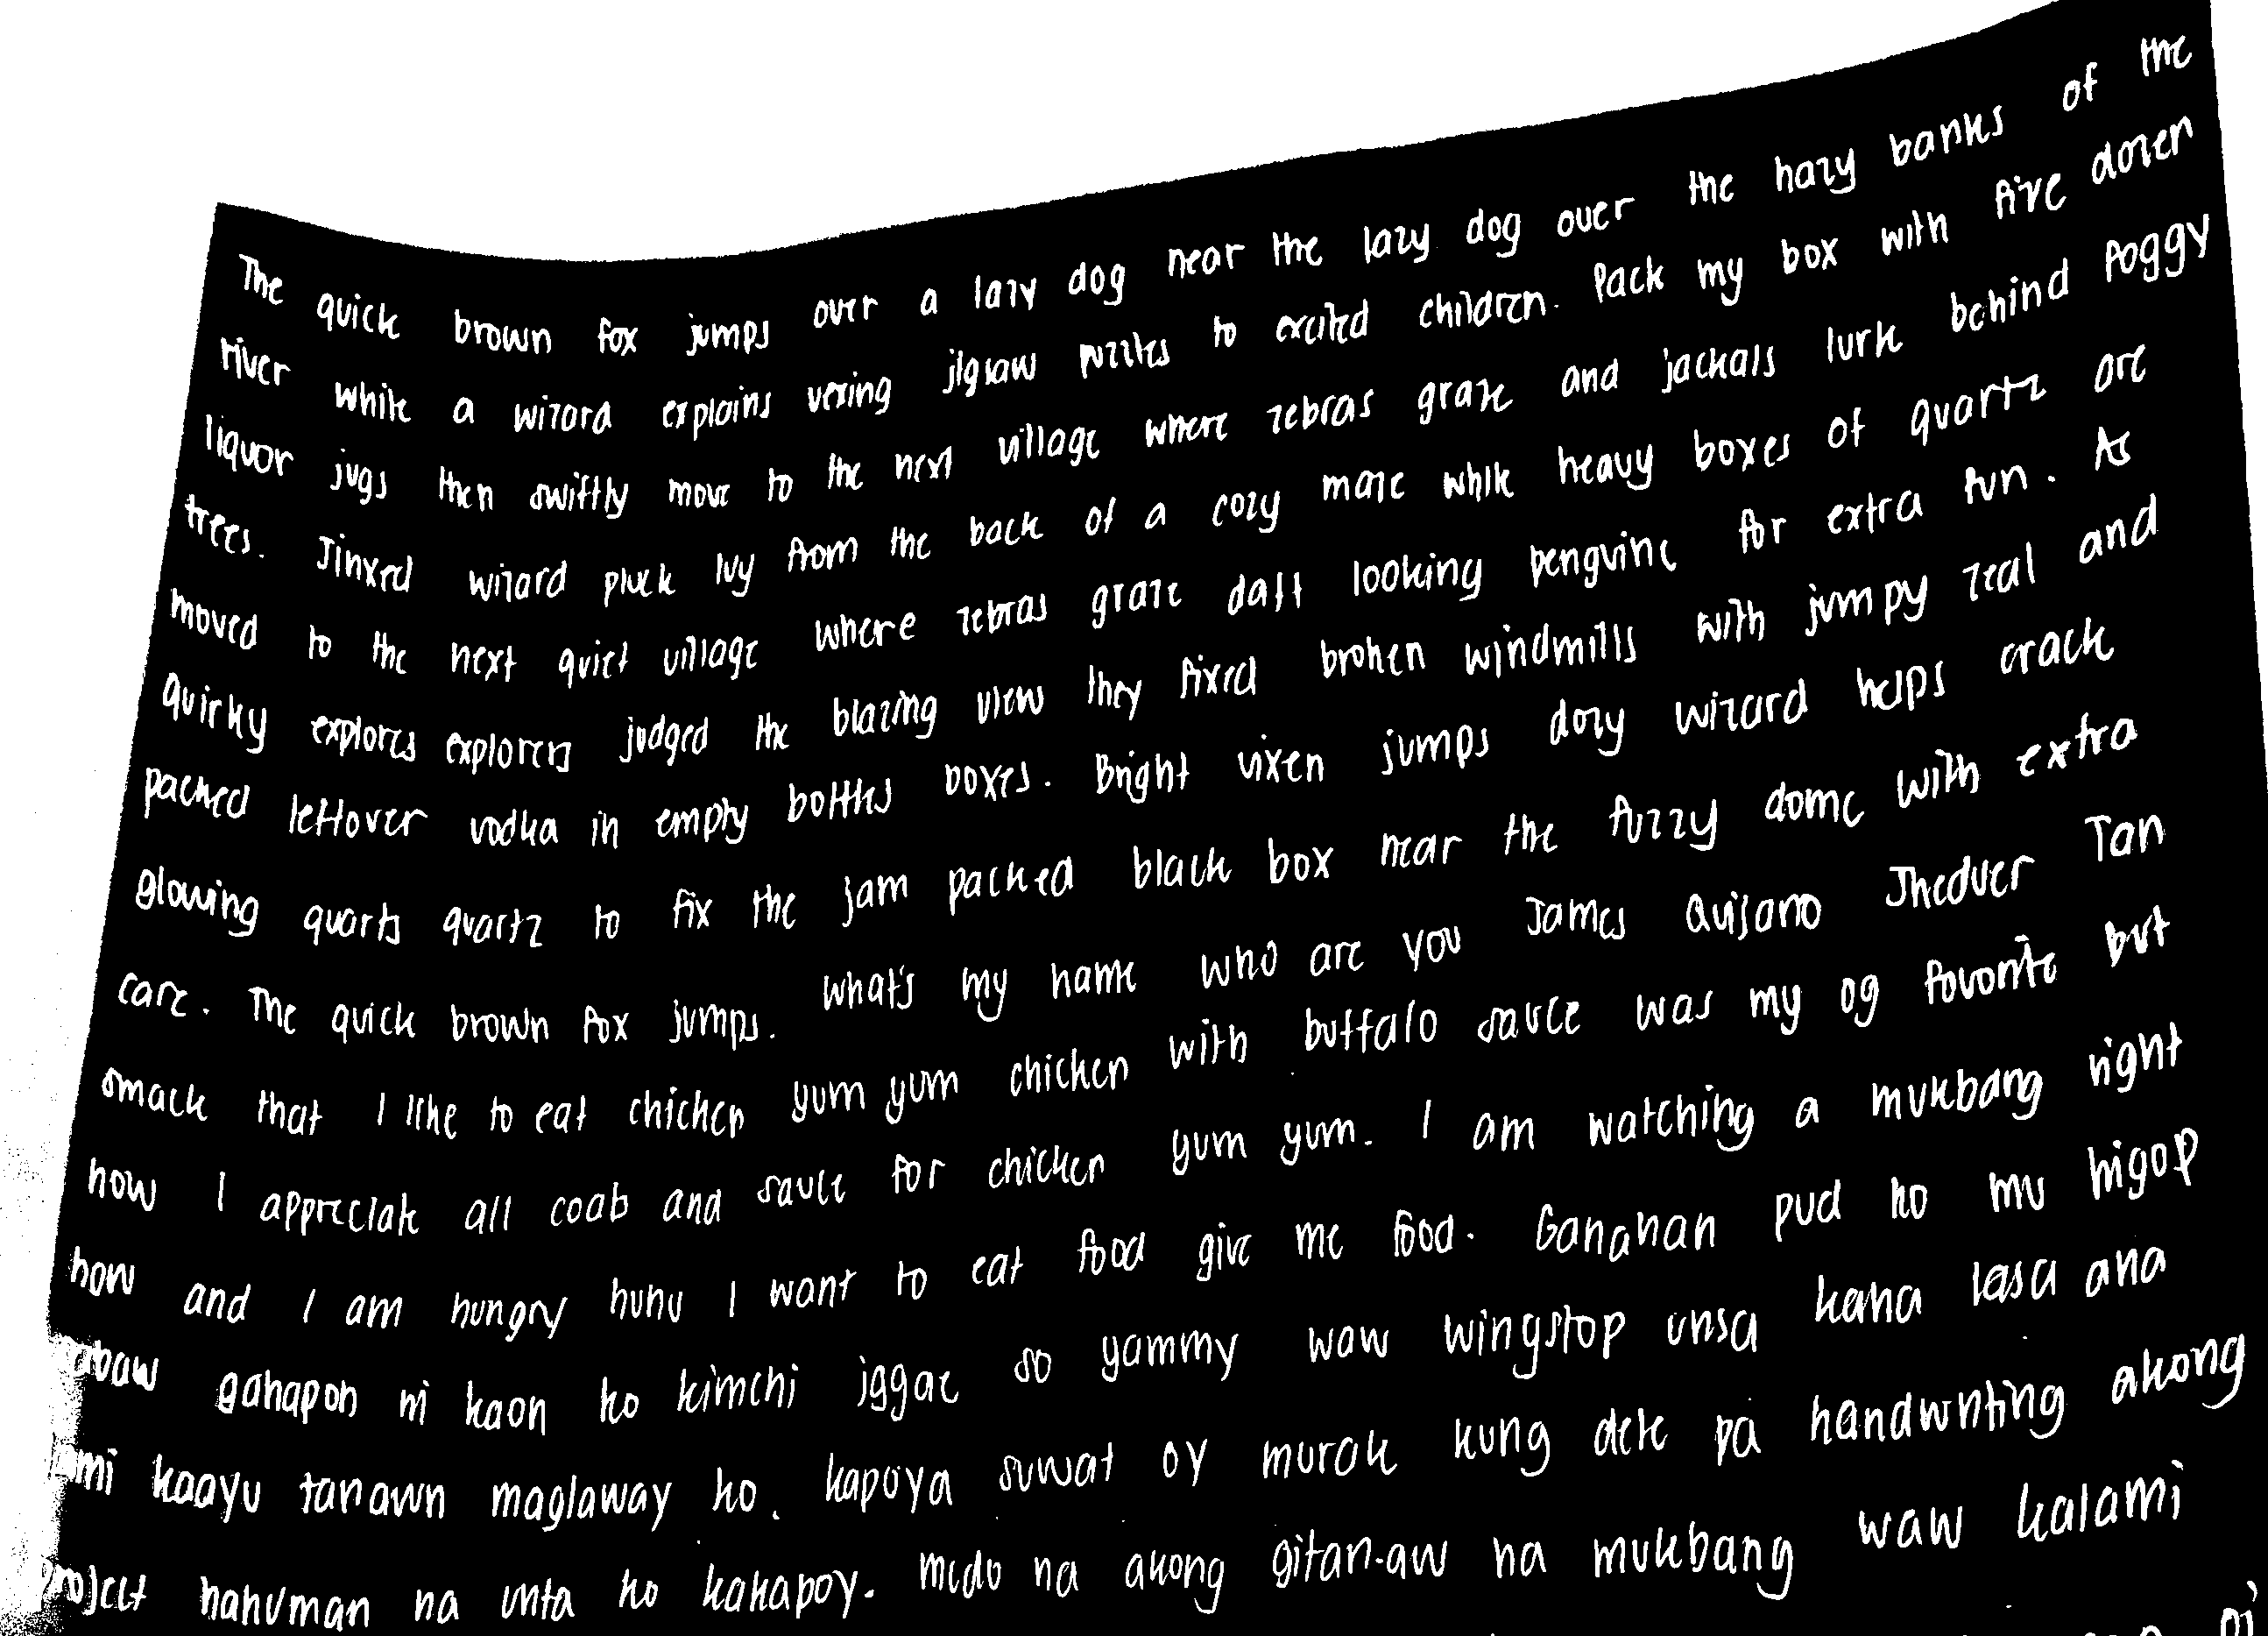 The quick brown fox jumps over a lazy dog near the lazy dog over the hazy banks of the
river while a wizard explains vexing jigsaw puzzles to excited children. Pack my box with five dozen
liquor jugs then swiftly move to the next village where zebras graze and jackals lurk behind foggy
trees. Jinxed wizard pluck Ivy from the back of a cozy maze while heavy boxes of quartz are
moved to the next quiet village where zebras graze daft looking penguins for extra fun. As
quirky explores explorers judged the blazing view they fixed broken windmills with jumpy zeal and
packed leftover vodka in empty bottles boxes. Bright vixen jumps dozy wizard helps crack
glowing quarts quartz to fix the jam packed black box near the fuzzy dome with extra
care. The quick brown fox jumps. What's my name who are you James Quijano Jheduer Tan
smack that I like to eat chicken yum yum chicken with buffalo sauce was my og favorite but
now I appreciate all coab and sauce for chicken yum yum. I am watching a mukbang right
now and I am hungry huhu I want to eat food give me food. Ganahan pud ko mu higop
gahapon ni kaon ko kimchi jggae so yammy waw wingstop unsa kaha lasa ana
kaayu tanawn maglaway ko. kapoya suwat oy murak kung pa handwriting akong
project nahuman na unta ko kakapoy. na akong gitan-aw na mukbang waw kalami